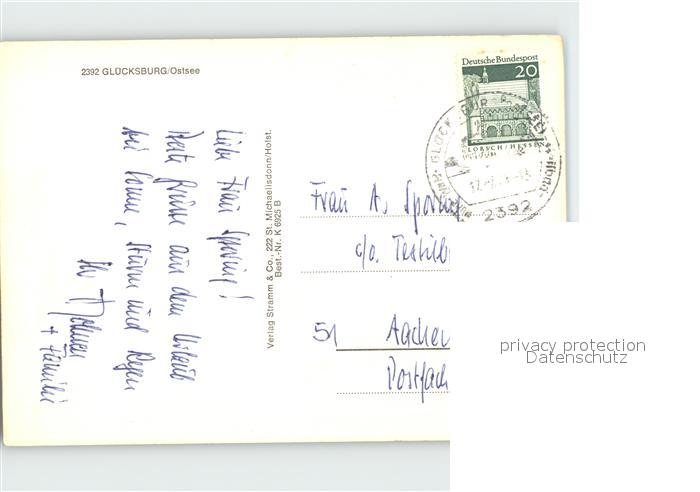 2392 GLÜCKSBURG/Ostsee
Liebe Frau Sporing!
Herzl. Grüße aus dem Urlaub
bei Sonne, Sturm und Regen
Ihr
+ Familie
Verlag Stramm & Co., 222 St. Michaelisdonn/Holst.
Best.-Nr. K 6925 B
Deutsche Bundespost
20
LORSCH/HESSEN
GLÜCKSBURG
2392
Frau A. Sporing
c/o. Textil
51 Aachen
Postfach
privacy protection
Datenschutz